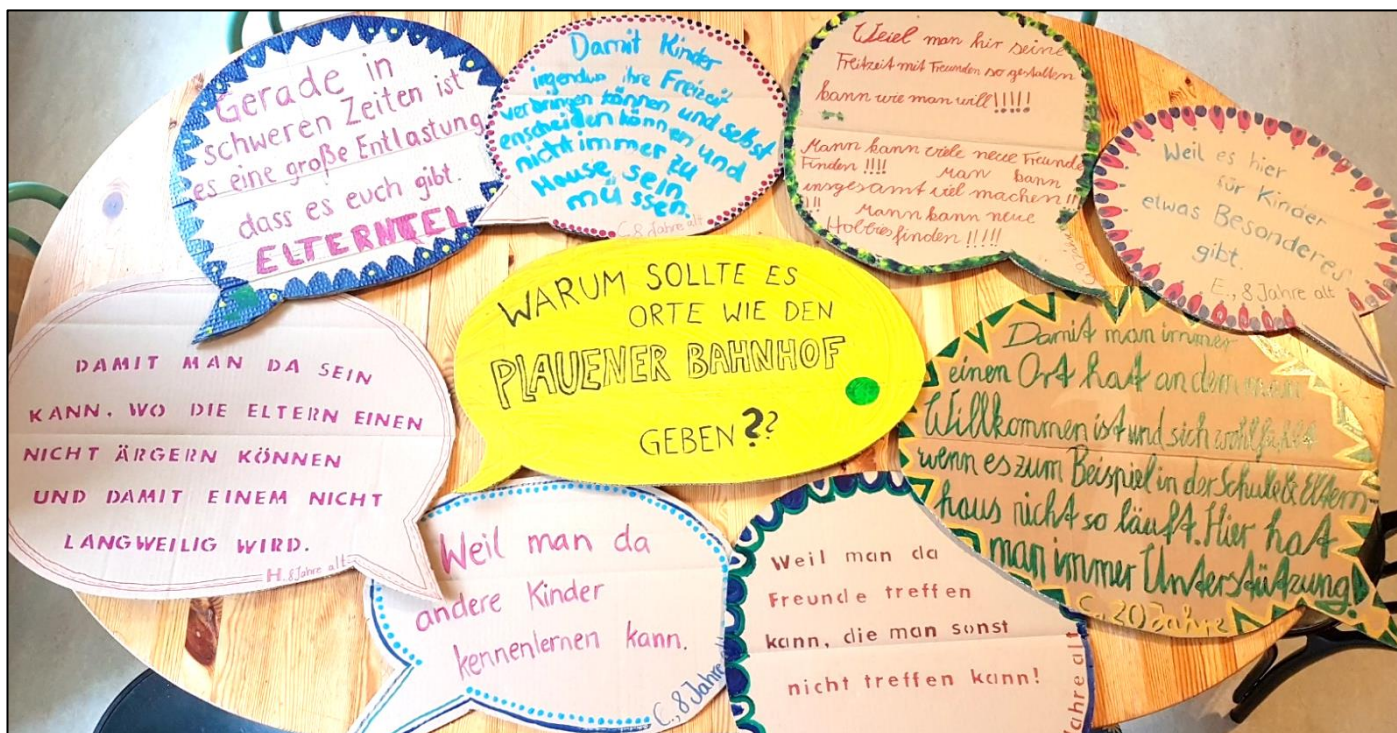 Gerade in
schweren Zeiten ist
es eine große Entlastung
dass es euch gibt.
ELTERNTEIL
Damit Kinder
irgendwo ihre Freizeit
verbringen können und selbst
enscheiden können und
nicht immer zu
Hause sein
müssen.
C., 8 Jahre alt
Weiel man hir seine
Freitzeit mit Freunden so gestalten
kann wie man will!!!!!
Mann kann viele neue Freunde
Finden !!!! Man kann
insgesamt viel machen!!!
!!! Mann kann neue
Hobbies finden !!!!!
Weil es hier
für Kinder
etwas Besonderes
gibt.
E., 8 Jahre alt
WARUM SOLLTE ES
ORTE WIE DEN
PLAUENER BAHNHOF
GEBEN??
DAMIT MAN DA SEIN
KANN, WO DIE ELTERN EINEN
NICHT ÄRGERN KÖNNEN
UND DAMIT EINEM NICHT
LANGWEILIG WIRD.
H. 8 Jahre alt
Damit man immer
einen Ort hat an dem man
Willkommen ist und sich wohlfühlt
wenn es zum Beispiel in der Schule & Eltern-
haus nicht so läuft. Hier hat
man immer Unterstützung!
C., 20 Jahre
Weil man da
andere Kinder
kennenlernen kann.
C., 8 Jahre alt
Weil man da
Freunde treffen
kann, die man sonst
nicht treffen kann!
Jahre alt